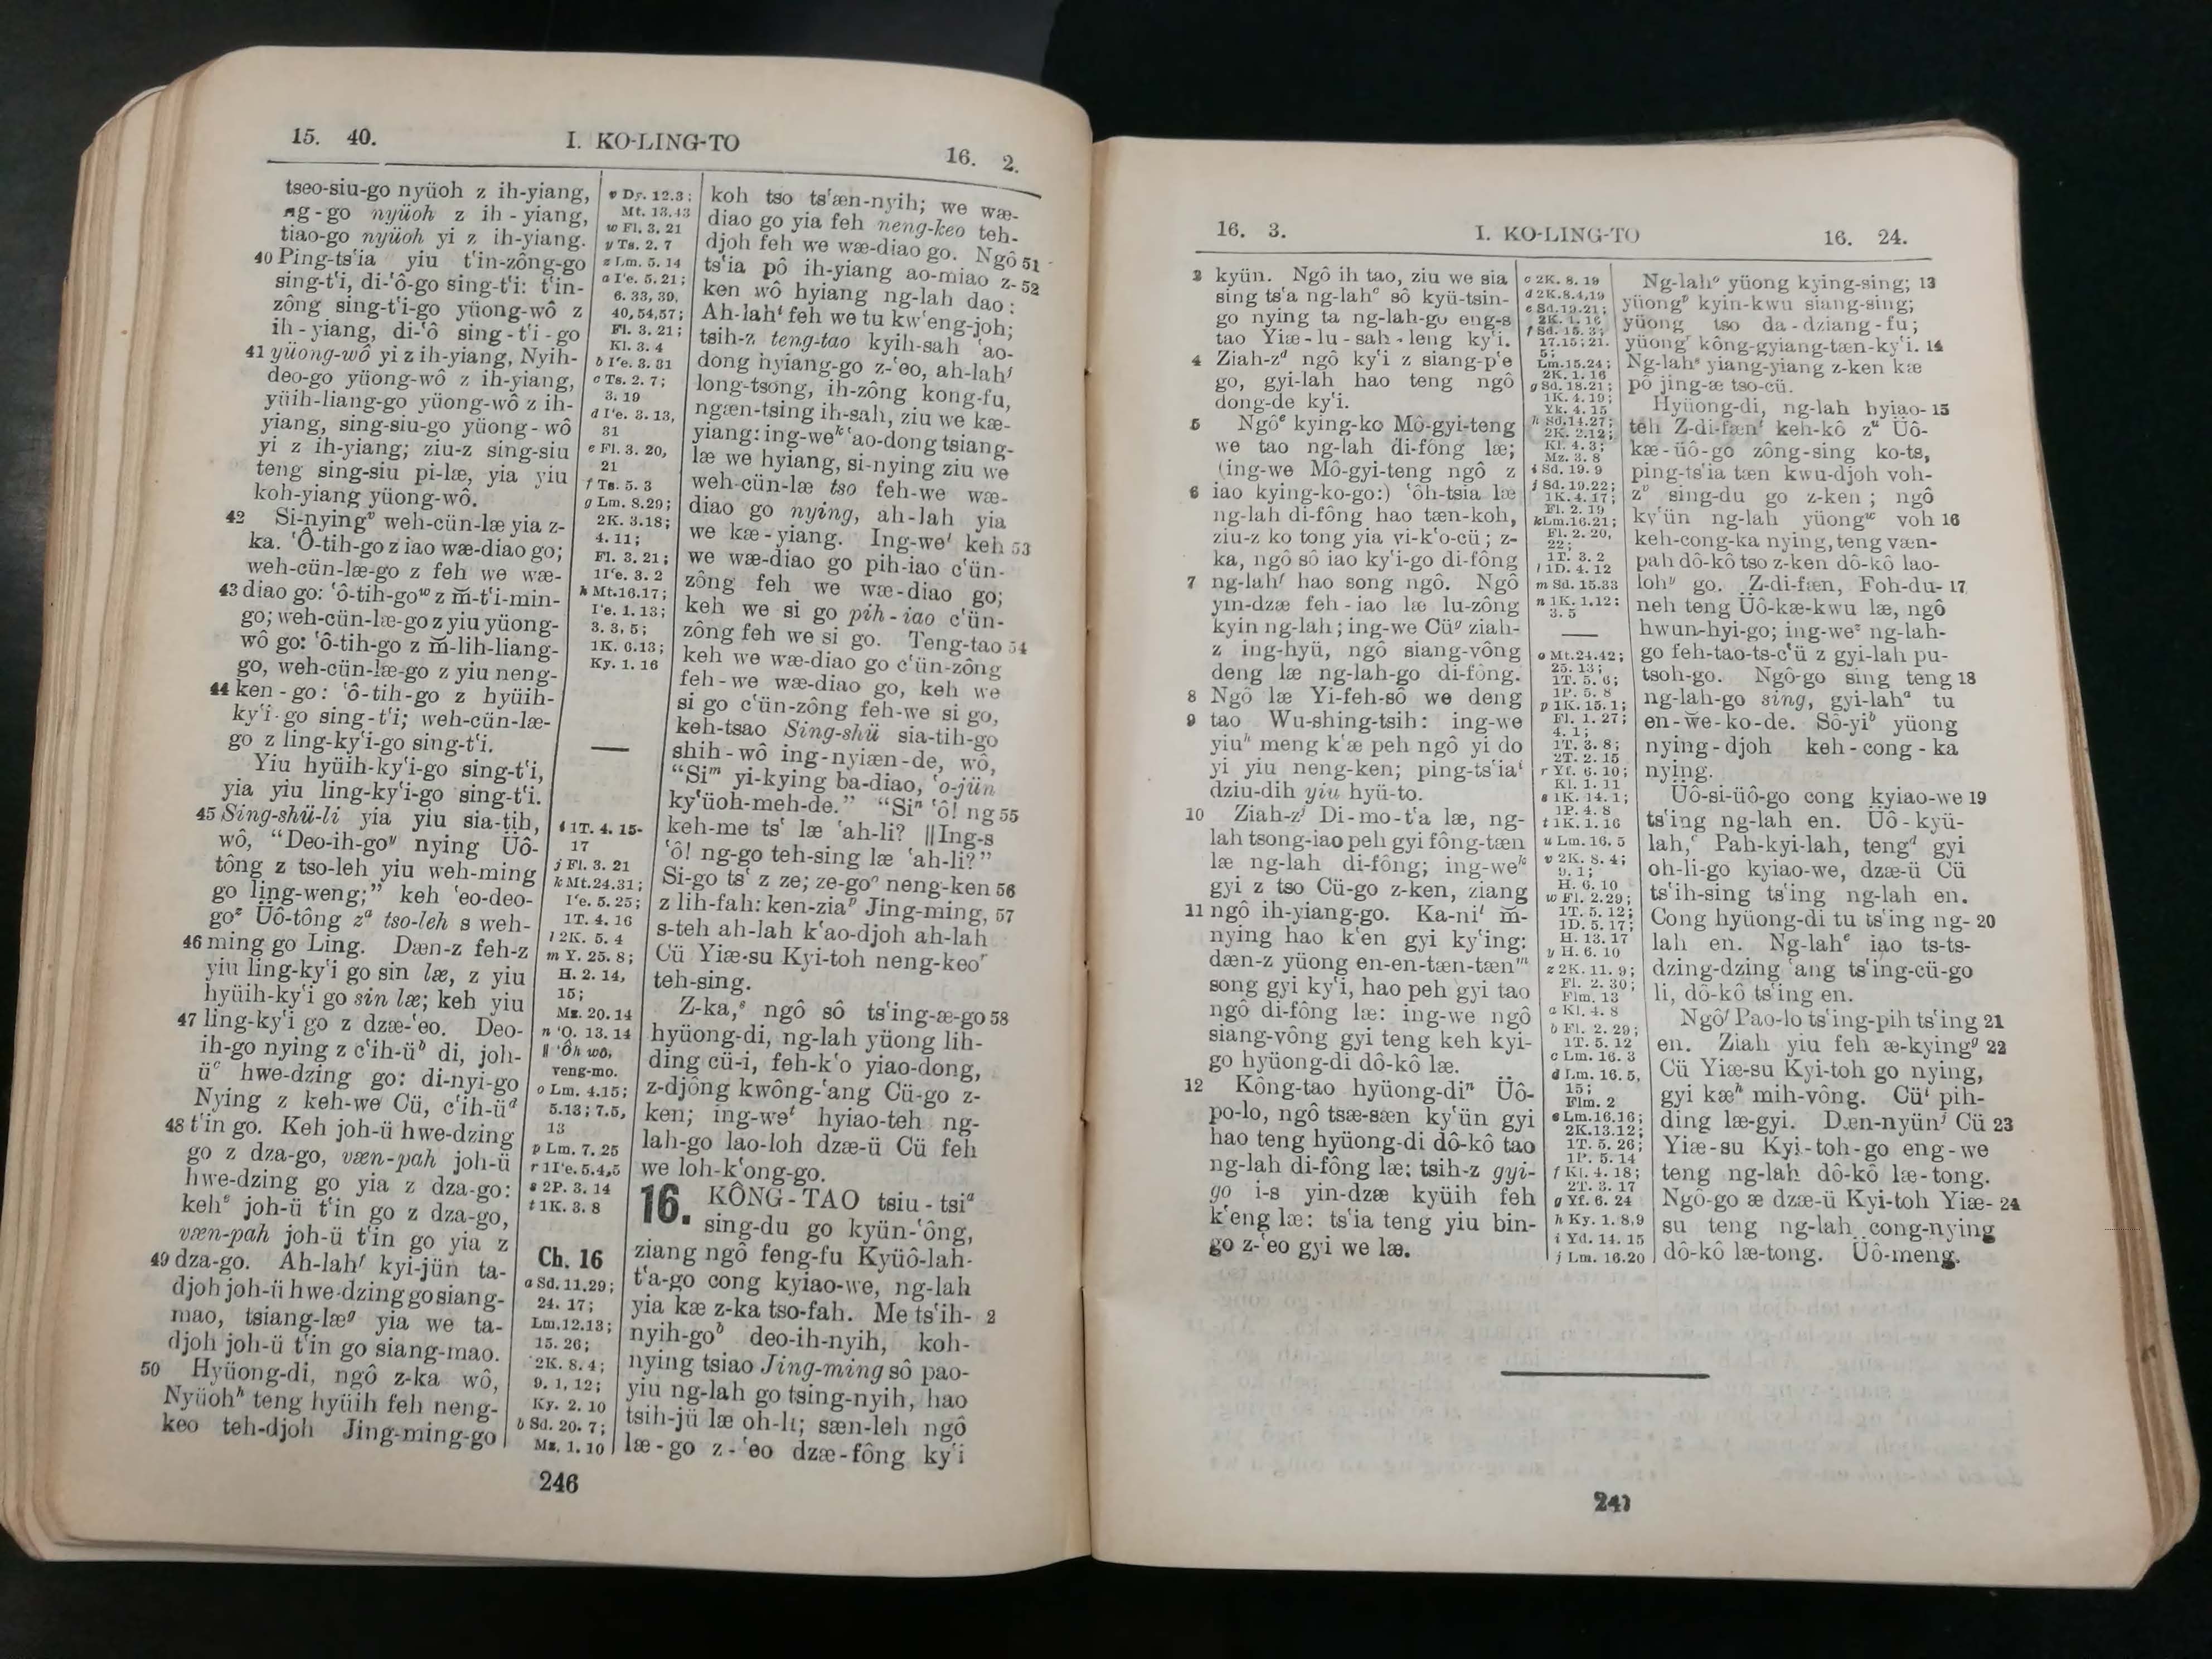 15. 40.
I. KO-LING-TO
16. 2.
tseo-siu-go nyüoh z ih-yiang,
ng-go nyüoh z ih-yiang,
tiao-go nyüoh yi z ih-yiang.
40 Ping-ts‘ia yiu t‘in-zông-go
sing-t‘i, di-‘ô-go sing-t‘i: t‘in-
zông sing-t‘i-go yüong-wô z
ih-yiang, di-‘ô sing-t‘i-go
41 yüong-wô yi z ih-yiang, Nyih-
deo-go yüong-wô z ih-yiang,
yüih-liang-go yüong-wô z ih-
yiang, sing-siu-go yüong-wô
yi z ih-yiang; ziu-z sing-siu
teng sing-siu pi-læ, yia yiu
koh-yiang yüong-wô.
42 Si-nying v weh-cün-læ yia z-
ka. ‘Ô-tih-go z iao wæ-diao go;
weh-cün-læ-go z feh we wæ-
43 diao go: ‘ô-tih-go w z m̆-t‘i-min-
go; weh-cün-læ-go z yiu yüong-
wô go: ‘ô-tih-go z m̆-lih-liang-
go, weh-cün-læ-go z yiu neng-
44 ken-go: ‘ô-tih-go z hyüih-
ky‘i-go sing-t‘i; weh-cün-læ-
go z ling-ky‘i-go sing-t‘i.
Yiu hyüih-ky‘i-go sing-t‘i,
yia yiu ling-ky‘i-go sing-t‘i.
45 Sing-shü-li yia yiu sia-tih,
wô, “Deo-ih-go y nying Üô-
tông z tso-leh yiu weh-ming
go ling-weng;” keh ‘eo-deo-
go z Üô-tông z a tso-leh s weh-
46 ming go Ling. Dæn-z feh-z
yiu ling-ky‘i go sin læ, z yiu
hyüih-ky‘i go sin læ; keh yiu
47 ling-ky‘i go z dzæ-‘eo. Deo-
ih-go nying z c‘ih-ü b di, joh-
ü c hwe-dzing go: di-nyi-go
Nying z keh-we Cü, c‘ih-ü d
48 t‘in go. Keh joh-ü hwe-dzing
go z dza-go, væn-pah joh-ü
hwe-dzing go yia z dza-go:
keh e joh-ü t‘in go z dza-go,
væn-pah joh-ü t‘in go yia z
49 dza-go. Ah-lah f kyi-jün ta-
djoh joh-ü hwe-dzing go siang-
mao, tsiang-læ g yia we ta-
djoh joh-ü t‘in go siang-mao.
50 Hyüong-di, ngô z-ka wô,
Nyüoh h teng hyüih feh neng-
keo teh-djoh Jing-ming-go
v Dy. 12.3;
Mt. 13.43
w Fl. 3. 21
y Ts. 2. 7
z Lm. 5. 14
a I‘e. 5.21;
6. 33, 39,
40, 54, 57;
Fl. 3. 21;
Kl. 3. 4
b I‘e. 3. 31
c Ts. 2. 7;
3. 19
d I‘e. 3. 13,
31
e Fl. 3. 20,
21
f Ts. 5. 3
g Lm. 8.29;
2K. 3.18;
4. 11;
Fl. 3. 21;
1I‘e. 3. 2
h Mt.16.17;
I‘e. 1. 13;
3. 3, 5;
1K. 6.13;
Ky. 1. 16
i 1T. 4. 15-
17
j Fl. 3. 21
k Mt.24.31;
I‘e. 5.25;
1T. 4. 16
l 2K. 5. 4
m Y. 25. 8;
H. 2. 14,
15;
Mz. 20. 14
n ‘O. 13. 14
|| ‘Ôh wô,
veng-mo.
o Lm. 4.15;
5.13; 7.5,
13
p Lm. 7. 25
r 1I‘e. 5.4,5
s 2P. 3. 14
t 1K. 3. 8
Ch. 16
a Sd. 11.29;
24. 17;
Lm.12.13;
15. 26;
2K. 8. 4;
9. 1, 12;
Ky. 2. 10
b Sd. 20. 7;
Mz. 1. 10
koh tso ts‘æn-nyih; we wæ-
diao go yia feh neng-keo teh-
djoh feh we wæ-diao go. Ngô 51
ts‘ia pô ih-yiang ao-miao z- 52
ken wô hyiang ng-lah dao:
Ah-lah i feh we tu kw‘eng-joh;
tsih-z teng-tao kyih-sah ‘ao-
dong hyiang-go z-‘eo, ah-lah j
long-tsong, ih-zông kong-fu,
ngæn-tsing ih-sah, ziu we kæ-
yiang: ing-we k ‘ao-dong tsiang-
læ we hyiang, si-nying ziu we
weh-cün-læ tso feh-we wæ-
diao go nying, ah-lah yia
we kæ-yiang. Ing-we l keh 53
we wæ-diao go pih-iao c‘ün-
zông feh we wæ-diao go;
keh we si go pih-iao c‘ün-
zông feh we si go. Teng-tao 54
keh we wæ-diao go c‘ün-zông
feh-we wæ-diao go, keh we
si go c‘ün-zông feh-we si go,
keh-tsao Sing-shü sia-tih-go
shih-wô ing-nyiæn-de, wô,
“Si m yi-kying ba-diao, ‘o-jün
ky‘üoh-meh-de.” “Si n ‘ô! ng 55
keh-me ts‘ læ ‘ah-li? ||Ing-s
‘ô! ng-go teh-sing læ ‘ah-li?”
Si-go ts‘ z ze; ze-go o neng-ken 56
z lih-fah: ken-zia p Jing-ming, 57
s-teh ah-lah k‘ao-djoh ah-lah
Cü Yiæ-su Kyi-toh neng-keo r
teh-sing.
Z-ka, s ngô sô ts‘ing-æ-go 58
hyüong-di, ng-lah yüong lih-
ding cü-i, feh-k‘o yiao-dong,
z-djông kwông-‘ang Cü-go z-
ken; ing-we t hyiao-teh ng-
lah-go lao-loh dzæ-ü Cü feh
we loh-k‘ong-go.
16. KÔNG-TAO tsiu-tsi a
sing-du go kyün-‘ông,
ziang ngô feng-fu Kyüô-lah-
t‘a-go cong kyiao-we, ng-lah
yia kæ z-ka tso-fah. Me ts‘ih- 2
nyih-go b deo-ih-nyih, koh-
nying tsiao Jing-ming sô pao-
yiu ng-lah go tsing-nyih, hao
tsih-jü læ oh-li; sæn-leh ngô
læ-go z-‘eo dzæ-fông ky‘i
246
16. 3.
I. KO-LING-TO
16. 24.
3 kyün. Ngô ih tao, ziu we sia
sing ts‘a ng-lah c sô kyü-tsin-
go nying ta ng-lah-go eng-s
tao Yiæ-lu-sah-leng ky‘i.
4 Ziah-z d ngô ky‘i z siang-p‘e
go, gyi-lah hao teng ngô
dong-de ky‘i.
5 Ngô e kying-ko Mô-gyi-teng
we tao ng-lah di-fông læ;
(ing-we Mô-gyi-teng ngô z
6 iao kying-ko-go:) ‘ôh-tsia læ
ng-lah di-fông hao tæn-koh,
ziu-z ko tong yia vi-k‘o-cü; z-
ka, ngô sô iao ky‘i-go di-fông
7 ng-lah f hao song ngô. Ngô
yin-dzæ feh-iao læ lu-zông
kyin ng-lah; ing-we Cü g ziah-
z ing-hyü, ngô siang-vông
deng læ ng-lah-go di-fông.
8 Ngô læ Yi-feh-sô we deng
9 tao Wu-shing-tsih: ing-we
yiu h meng k‘æ peh ngô yi do
yi yiu neng-ken; ping-ts‘ia i
dziu-dih yiu hyü-to.
10 Ziah-z j Di-mo-t‘a læ, ng-
lah tsong-iao peh gyi fông-tæn
læ ng-lah di-fông; ing-we k
gyi z tso Cü-go z-ken, ziang
11 ngô ih-yiang-go. Ka-ni l m̆-
nying hao k‘en gyi ky‘ing:
dæn-z yüong en-en-tæn-tæn m
song gyi ky‘i, hao peh gyi tao
ngô di-fông læ: ing-we ngô
siang-vông gyi teng keh kyi-
go hyüong-di dô-kô læ.
12 Kông-tao hyüong-di n Üô-
po-lo, ngô tsæ-sæn ky‘ün gyi
hao teng hyüong-di dô-kô tao
ng-lah di-fông læ: tsih-z gyi-
go i-s yin-dzæ kyüih feh
k‘eng læ: ts‘ia teng yiu bin-
go z-‘eo gyi we læ.
c 2K. 8. 19
d 2K.8.4,19
e Sd.19.21;
2K. 1. 16
f Sd. 15. 3;
17.15; 21.
5;
Lm.15.24;
2K. 1. 16
g Sd. 18.21;
1K. 4. 19;
Yk. 4. 15
h Sd.14.27;
2K. 2.12;
Kl. 4. 3;
Mz. 3. 8
i Sd. 19. 9
j Sd. 19.22;
1K. 4. 17;
Fl. 2. 19
k Lm.16.21;
Fl. 2. 20,
22;
1T. 3. 2
l 1D. 4. 12
m Sd. 15.33
n 1K. 1.12;
3. 5
o Mt.24.42;
25. 13;
1T. 5. 6;
1P. 5. 8
p 1K. 15. 1;
Fl. 1. 27;
4. 1;
1T. 3. 8;
2T. 2. 15
r Yf. 6. 10;
Kl. 1. 11
s 1K. 14. 1;
1P. 4. 8
t 1K. 1. 16
u Lm. 16. 5
v 2K. 8. 4;
9. 1;
H. 6. 10
w Fl. 2. 29;
1T. 5. 12;
1D. 5. 17;
H. 13. 17
y H. 6. 10
z 2K. 11. 9;
Fl. 2. 30;
Flm. 13
a Kl. 4. 8
b Fl. 2. 29;
1T. 5. 12
c Lm. 16. 3
d Lm. 16. 5,
15;
Flm. 2
e Lm.16.16;
2K.13.12;
1T. 5. 26;
1P. 5. 14
f Kl. 4. 18;
2T. 3. 17
g Yf. 6. 24
h Ky. 1. 8,9
i Yd. 14. 15
j Lm. 16.20
Ng-lah o yüong kying-sing; 13
yüong p kyin-kwu siang-sing;
yüong tso da-dziang-fu;
yüong r kông-gyiang-tæn-ky‘i. 14
Ng-lah s yiang-yiang z-ken kæ
pô jing-æ tso-cü.
Hyüong-di, ng-lah hyiao- 15
teh Z-di-fæn t keh-kô z u Üô-
kæ-üô-go zông-sing ko-ts,
ping-ts‘ia tæn kwu-djoh voh-
z v sing-du go z-ken; ngô
ky‘ün ng-lah yüong w voh 16
keh-cong-ka nying, teng væn-
pah dô-kô tso z-ken dô-kô lao-
loh y go. Z-di-fæn, Foh-du- 17
neh teng Üô-kæ-kwu læ, ngô
hwun-hyi-go; ing-we z ng-lah-
go feh-tao-ts-c‘ü z gyi-lah pu-
tsoh-go. Ngô-go sing teng 18
ng-lah-go sing, gyi-lah a tu
en-we-ko-de. Sô-yi b yüong
nying-djoh keh-cong-ka
nying.
Üô-si-üô-go cong kyiao-we 19
ts‘ing ng-lah en. Üô-kyü-
lah, c Pah-kyi-lah, teng d gyi
oh-li-go kyiao-we, dzæ-ü Cü
ts‘ih-sing ts‘ing ng-lah en.
Cong hyüong-di tu ts‘ing ng- 20
lah en. Ng-lah e iao ts-ts-
dzing-dzing ‘ang ts‘ing-cü-go
li, dô-kô ts‘ing en.
Ngô f Pao-lo ts‘ing-pih ts‘ing 21
en. Ziah yiu feh æ-kying g 22
Cü Yiæ-su Kyi-toh go nying,
gyi kæ h mih-vông. Cü i pih-
ding læ-gyi. Dæn-nyün j Cü 23
Yiæ-su Kyi-toh-go eng-we
teng ng-lah dô-kô læ-tong.
Ngô-go æ dzæ-ü Kyi-toh Yiæ- 24
su teng ng-lah cong-nying
dô-kô læ-tong. Üô-meng.
247